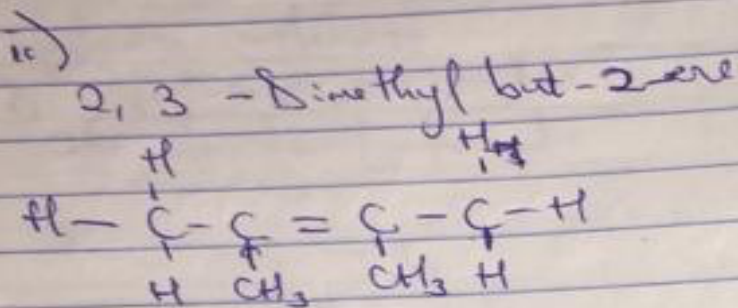 ii)
2, 3 - Dimethyl but-2-ene
H H
H - C - C = C - C - H
H CH₃ CH₃ H